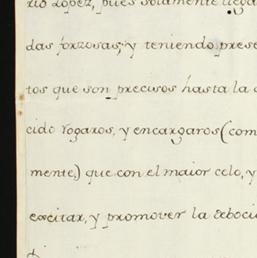 rio Lopez, pues solamente llega
das forzosas; y teniendo prese
tos que son precisos hasta la
cido rogaros, y encargaros (com
mente,) que con el maior celo, y
excitar, y promover la exboci